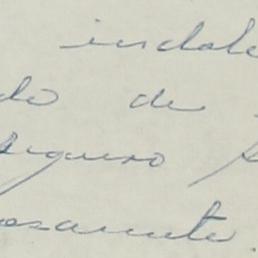 indale
do de
seguro s
osamente.